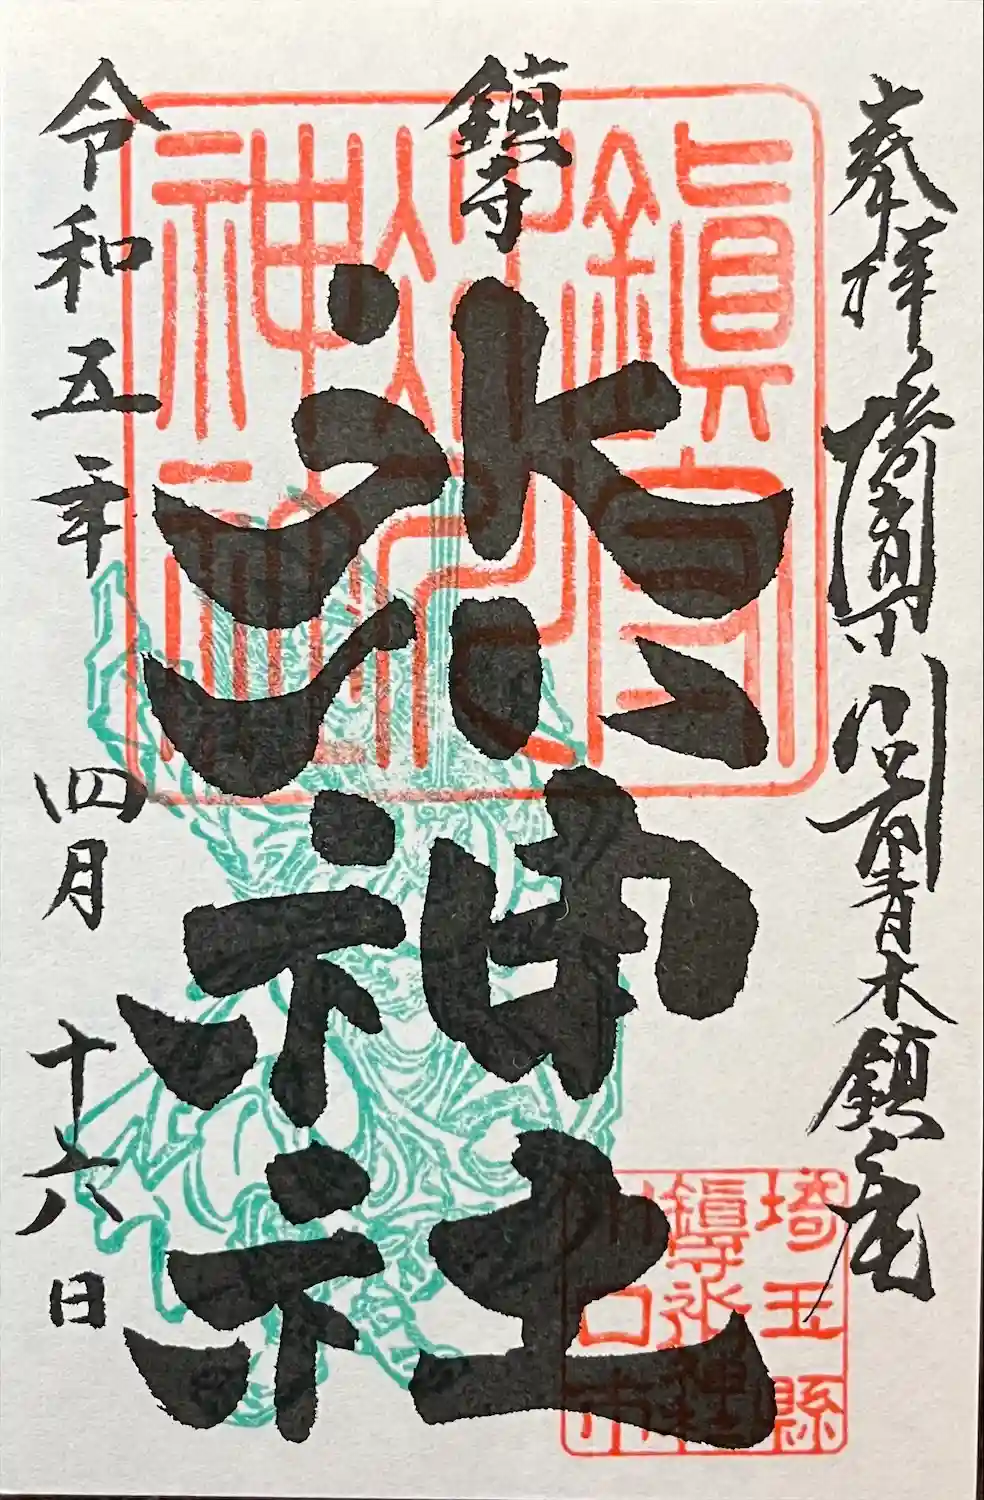 奉拝 埼玉県川口市青木鎮座
鎮守
氷川神社
令和五年四月十六日
鎭守
氷川
神社
埼玉縣
鎭守氷川神社
川口市